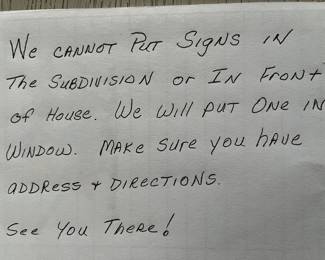 We cannot Put Signs in
The Subdivision or In Front
of House. We will put One in
Window. Make sure you have
address + Directions.
See You There!